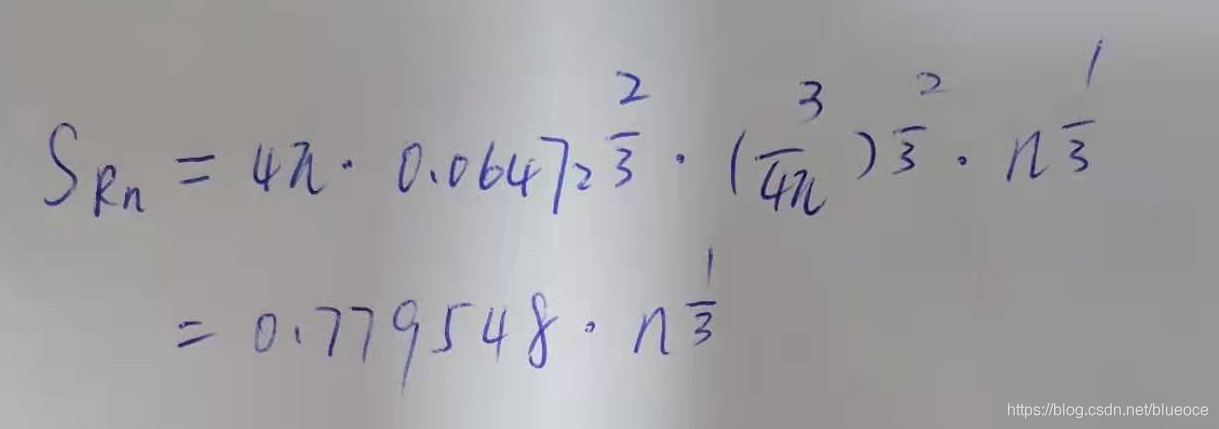 S_{Rn} = 4π · 0.06472^{2/3} · (3/4π)^{2/3} · n^{1/3}
= 0.779548 · n^{1/3}
https://blog.csdn.net/blueoce